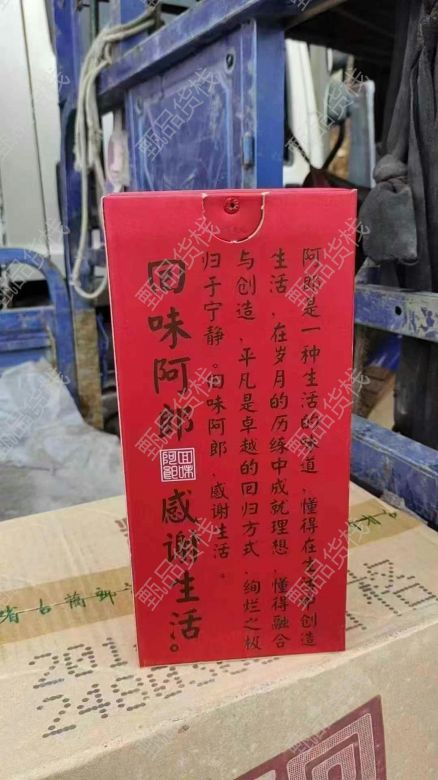 阿郎是一种生活的味道,懂得在生活中创造
生活,在岁月的历练中成就理想,懂得融合
与创造,平凡是卓越的回归方式,绚烂之极
归于宁静。回味阿郎,感谢生活。
回味阿郎
回味
阿郎
感谢生活。
省古蔺郎
甄品货栈